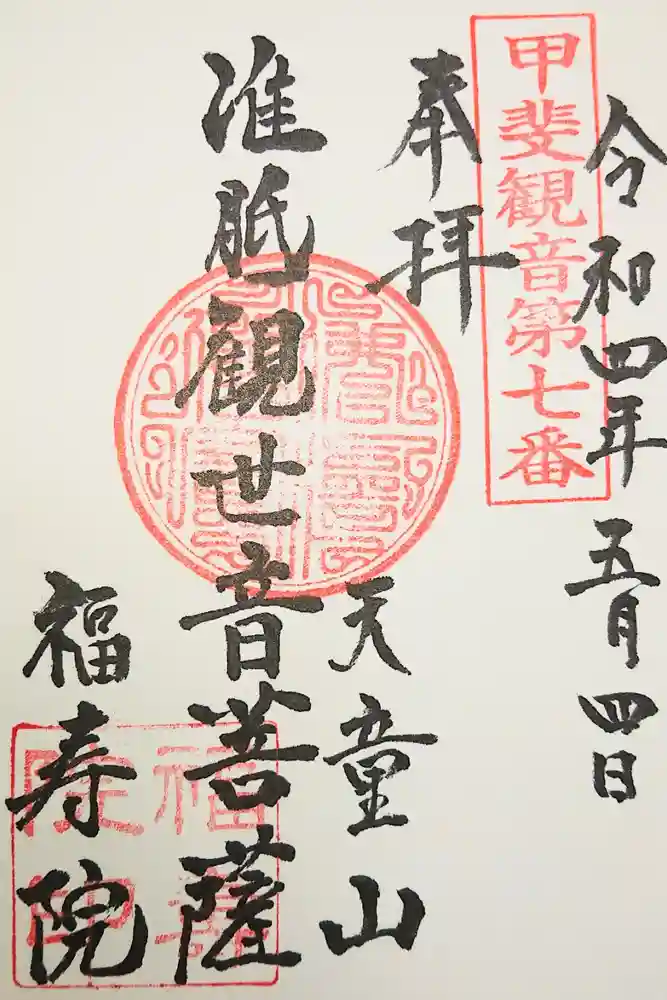 令和四年五月四日
甲斐観音第七番
奉拝
准胝観世音菩薩
天童山
福寿院